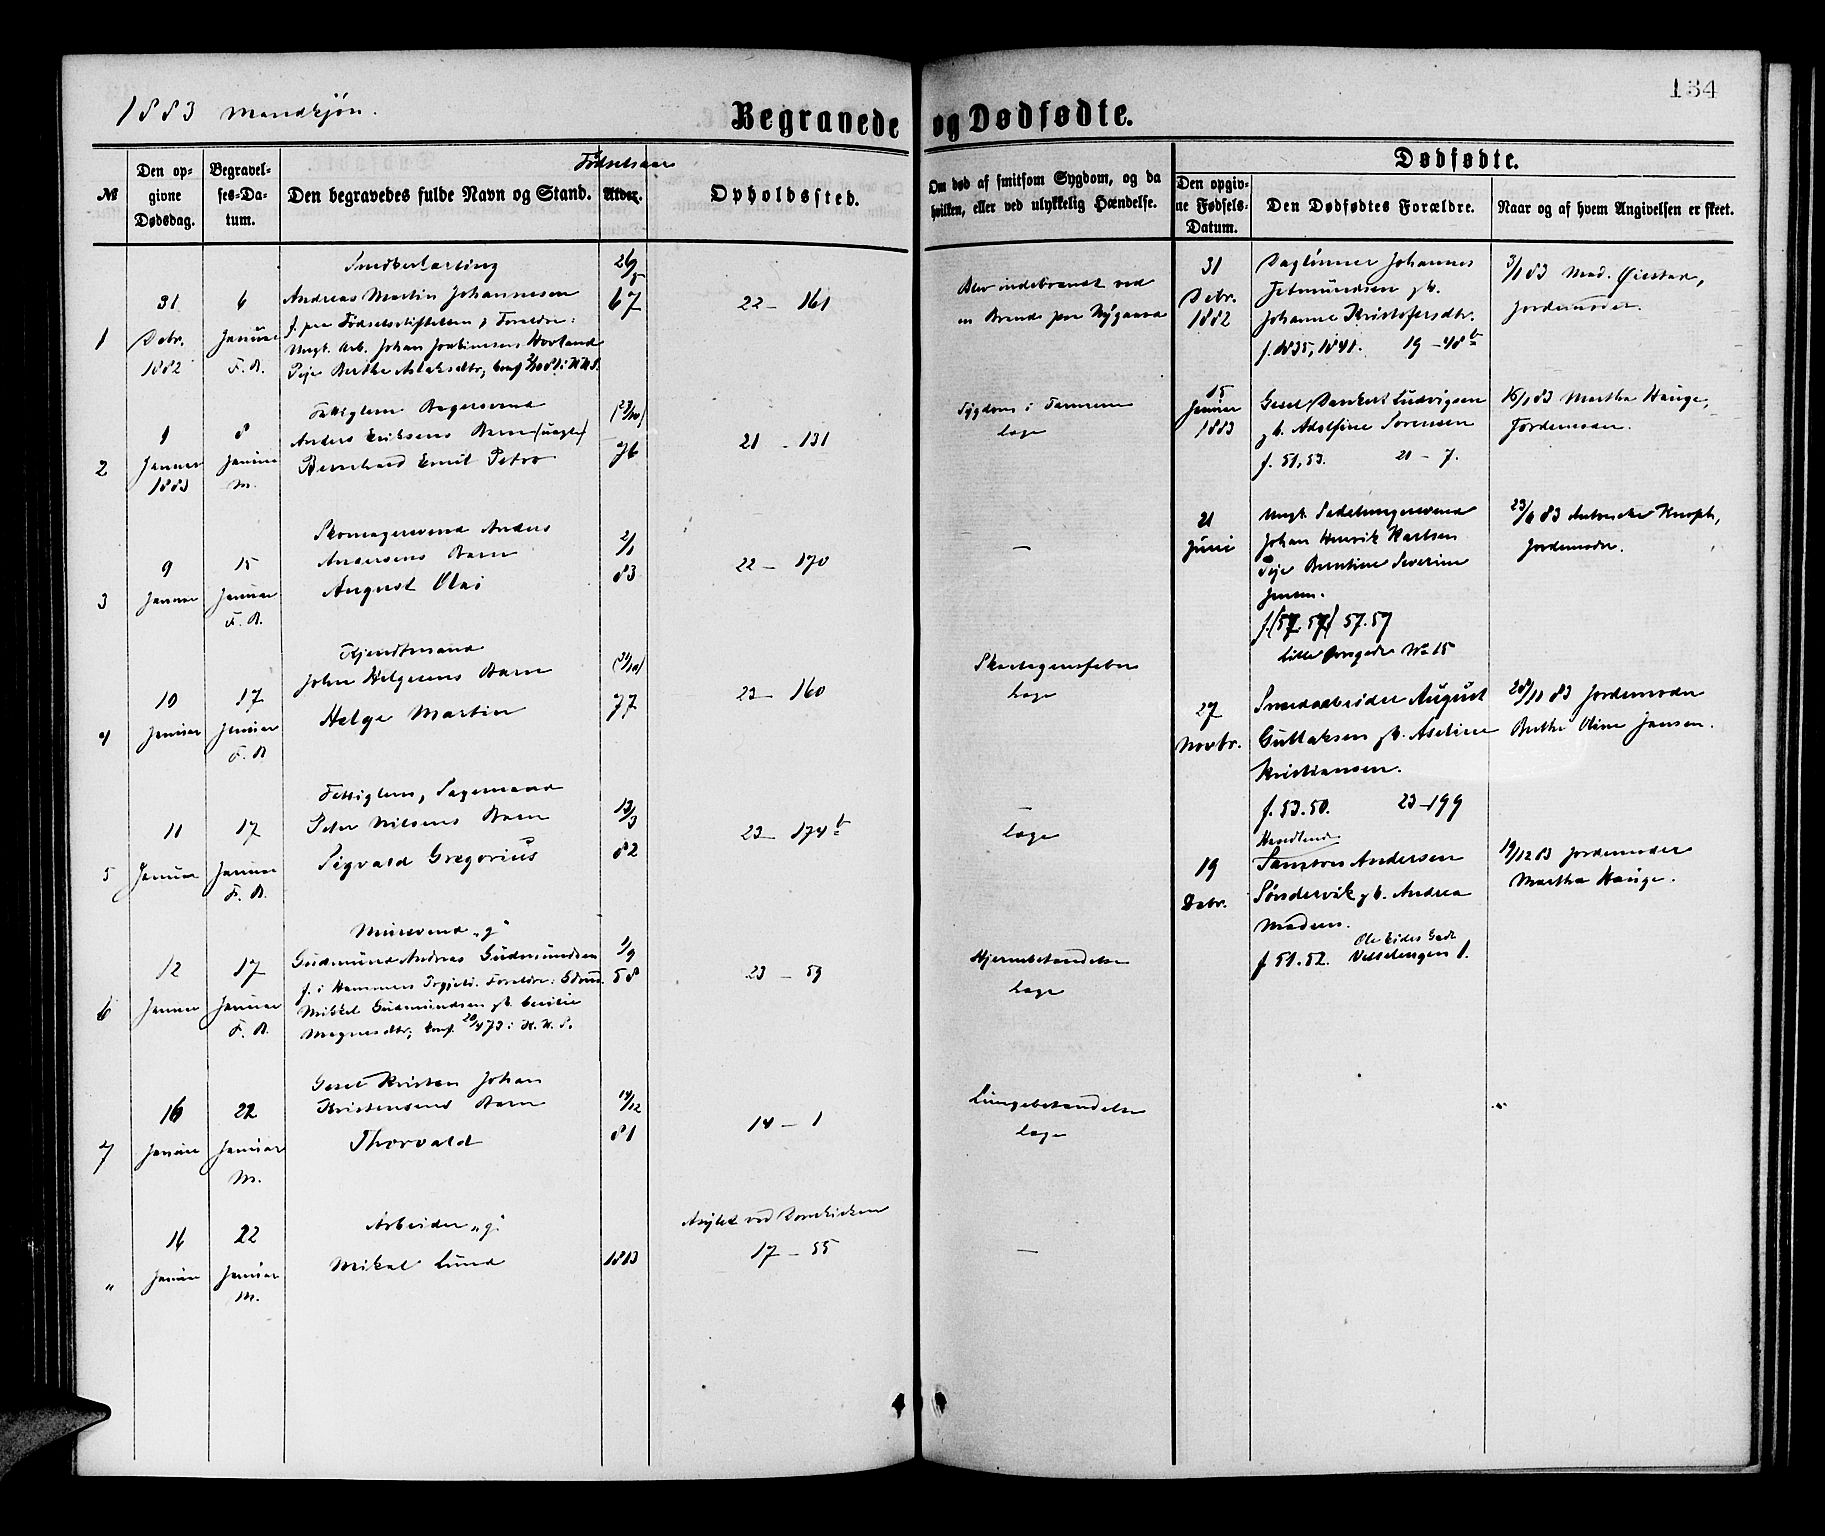 134
1883 Mandkjøn.
Begravede og Dødfødte.
Dødfødte.
№
Den op-
givne
Dødsdag.
Begravel-
ses-Da-
tum.
Den begravedes fulde Navn og Stand.
Fødselsaar
Alder.
Opholdssted.
Om død af smitsom Sygdom, og da
hvilken, eller ved ulykkelig Hændelse.
Den opgiv-
ne Fødsels-
Datum.
Den Dødfødtes Forældre.
Naar og af hvem Angivelsen er skeet.
1
31
Debr.
1882
6
Januar
F. B.
Smedlærling
Andreas Martin Johannesen
f. paa Fødselsstiftelsen, Forældre:
Ungk. Arb. Johan Hovland
Pige Berthe
26/5
67
22 - 161
Blev indebrændt ved
en Brand paa Nygaard
2
Januar
1883
8
Januar
M.
Fattiglem Bagersvend
Anders Eriksens Barn (uægte)
Bernhard Emil Petro
(23/10)
76
21 - 131
Sygdom i Tarmene
Læge
3
9
Januar
15
Januar
F. B.
Skomagersvend Anders
Andersens Barn
August Olai
2/1
83
22 - 170
—
4
10
Januar
17
Januar
F. B.
John Helgesens Barn
Helge Martin
77
23 - 160
Skarlagensfeber
Læge
5
11
Januar
17
Januar
F. B.
Fattiglem, Sagemand
Peter Nilsens Barn
Sigvald Gregorius
13/3
82
23 - 174 b
—
Læge
6
12
Januar
17
Januar
F. B.
Mursvend „g"
Gudmund Andreas Gudmundsen
f. i Hammers Prgjeld. Forældre:
Mikkel Gudmundsen gb. Cecilie
Magnusdtr, conf. 20/4 73 i K. K. S.
1/9
58
23 - 59
Hjernebetændelse
Læge
7
16
Januar
22
Januar
M.
Gesel Kristen Johan
Kristensens Barn
Thorvald
14/12
81
14 - 1
Lungebetændelse
Læge
„
16
Januar
22
Januar
M.
Arbeider „g"
Mikal Lund
1813
Asylet ved Domkirken
17 - 55
—
31
Debr.
1882
Daglønner Johannes
gb.
Johanne Kristofersdtr.
f. 1835, 1841. 19 - 48 b
3/1 83 Mad. Øiestad,
Jordemoder.
15
Januar
1883
Gesel Dankert Ludvigsen
gb. Adolfine Sørensen
f. 51, 53. 21 - 7.
16/1 83 Martha Hauge,
Jordemoder.
21
Juni
Ungk. Sadelmagersvend
Johan Henrik Karlsen
Pige Berntine Severine
Jensen.
f. (57, 57) 57. 57
Lille Øvregade No 15
23/6 83 Knoph,
Jordemoder.
27
Novbr.
Smedarbeider August
Gullaksen gb. Aseline
Kristiansen.
f. 53. 50. 23 - 199
28/11 83 Jordemoder
Berthe Oline Jansen.
19
Debr.
Handlende
Andersen
Søndervik gb. Andrea
Madsen.
f 51. 52. Ole Eides Gade
1.
19/12 83 Jordemoder
Martha Hauge.